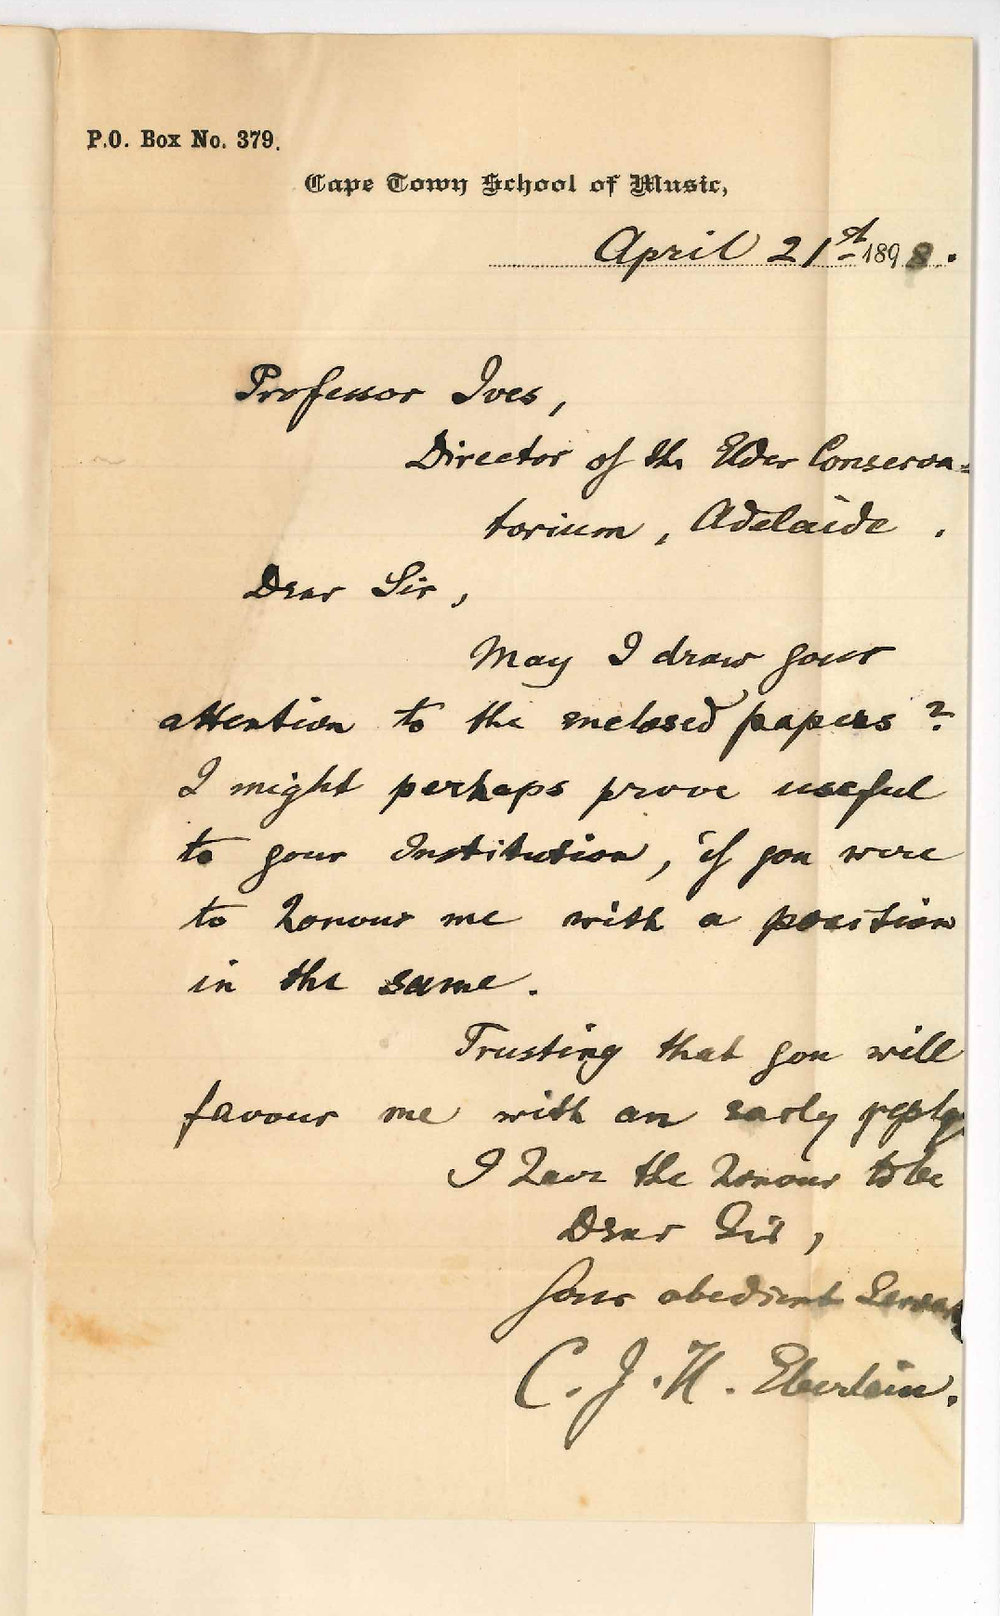 P.O. Box No. 379.
Cape Town School of Music,
April 21st 1898.
Professor Ives,
Director of the Elder Conserva=
torium, Adelaide.
Dear Sir,
May I draw your
attention to the enclosed papers?
I might perhaps prove useful
to your Institution, if you were
to honour me with a position
in the same.
Trusting that you will
favour me with an early reply
I have the honour to be
Dear Sir,
Your obedient Servant
C. J. H. Eberlein.